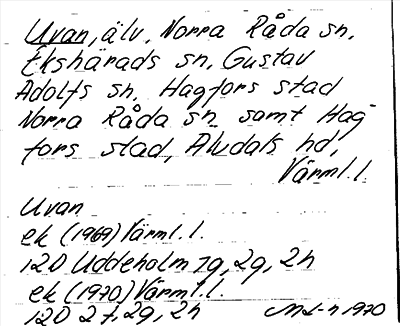 Uvan, älv, Norra Råda sn,
Ekshärads sn, Gustav
Adolfs sn, Hagfors stad
Norra Råda sn samt Hag-
fors stad, Älvdals hd,
Värml. l.
Uvan
ek (1969) Värml. l.
12D Uddeholm 1g, 2g, 2h
ek (1970) Värml. l.
12D 2f, 2g, 2h
1970